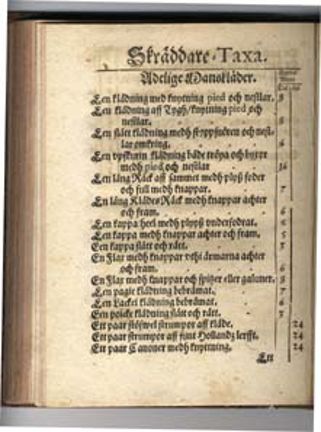 Skräddare-Taxa.
Adelige Manskläder.
Een klädning med knytning pied och nestlar. 8
Een klädning aff Tygh/knytning pied och
nestlar.
Een slätt klädning medh och nest-
lar omkring. 6
Een klädning både tröya och
medh pied och nestlar 16
Een lång Råck aff sammet medh plyß foder
och full medh knappar. 7
En lång Klädes Råck medh knappar achter
och fram. 6
Een kappa heel medh plyyß underfodrat. 6
Een kappa medh knappar achter och fram. 5
Een kappa slätt och rätt. 3
En medh knappar uthi ärmarna achter
och fram. 6
En medh knappar och spitzer eller galuner. 8
Een pagie klädning bebrämat. 7
Een Lackei klädning bebrämat. 6
Een poicke klädning slätt och rätt. 3
Ett paar stöfwel strumpor aff kläde. 24
Ett paar strumpor aff fijnt Hollandz lerfft. 24
Ett paar Canoner medh knytning. 24
Ett